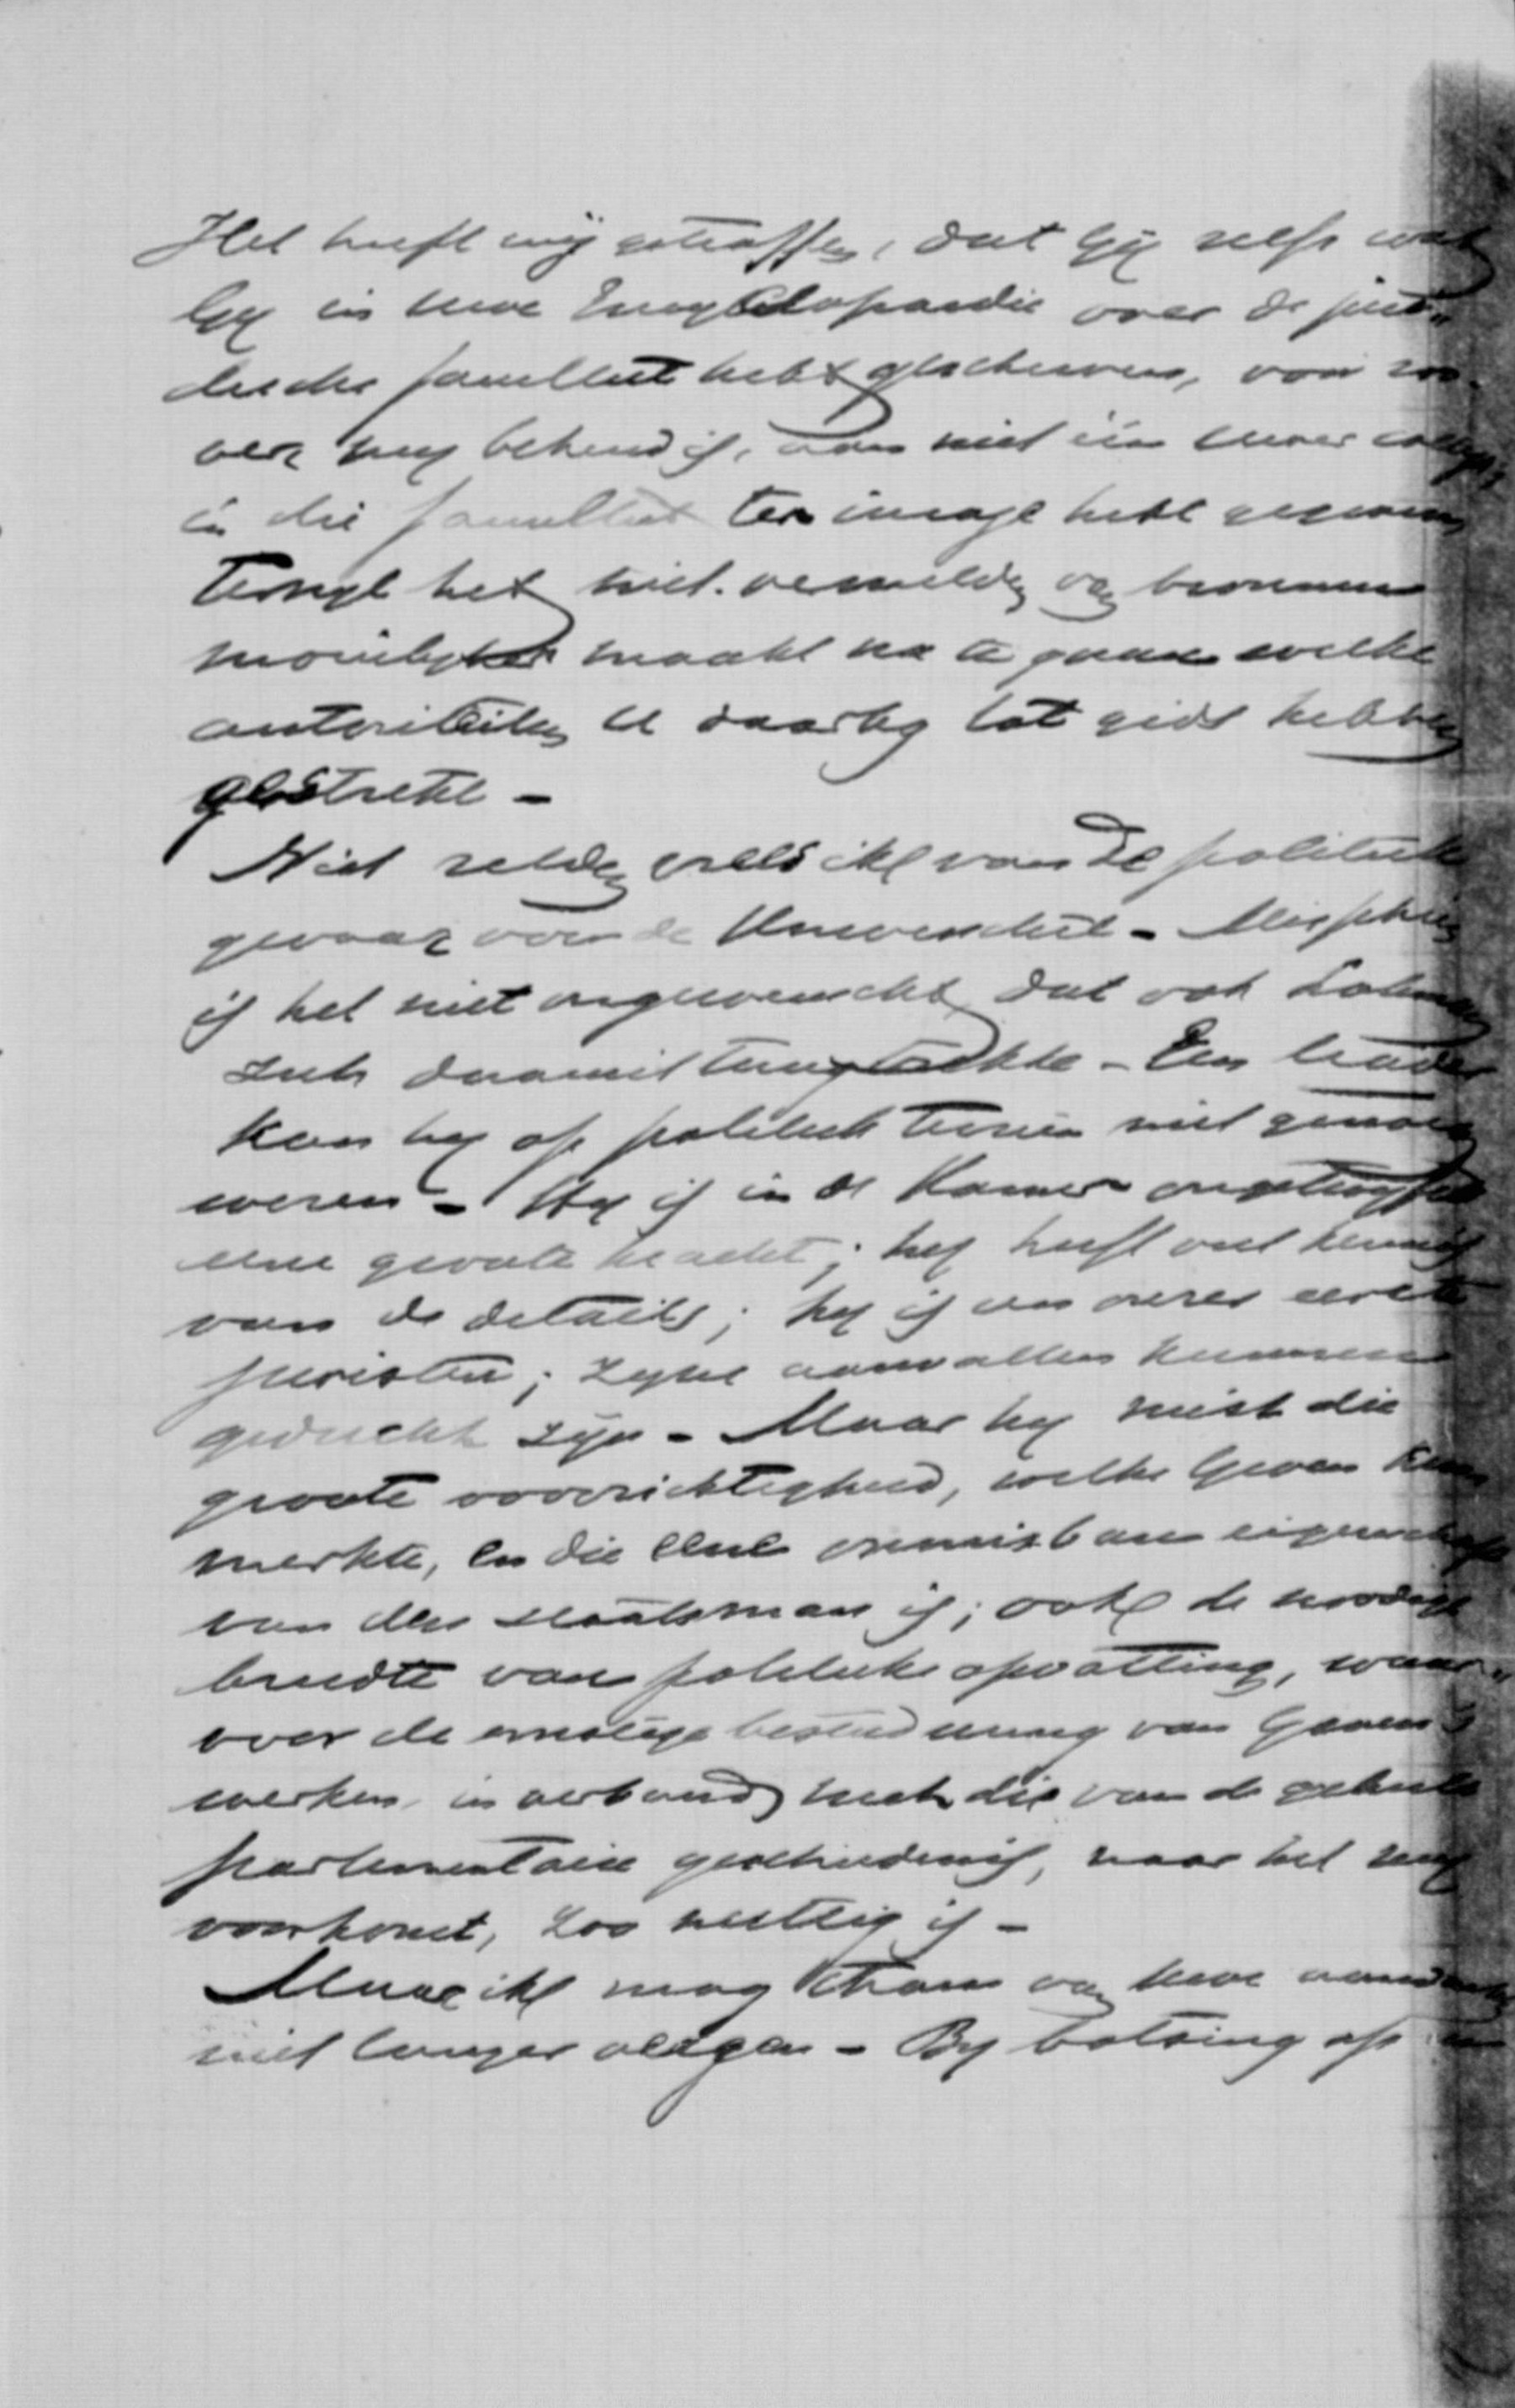 Het heeft mij getroffen, dat Gij zelfs wat
Gij in Uwe Encyclopaedie over de juri„
dische faculteit hebt geschreven, voor zoo„
ver mij bekend is, aan niet één Uwer collega's
in die faculteit ter inzage hebt gegeven,
terwijl het niet vermelden van bronnen
moeilijker maakt na te gaan welke
autoriteiten U daarbij tot gids hebben
gestrekt –
Niet zelden vrees ik van de politiek
gevaar voor de Universiteit – Misschien
is het niet ongewenscht dat ook Lohman
zich daaruit terugtrekke – Een leader
kan hij op politiek terrein niet genoemd
weren – Hij is in de Kamer ongetwijfeld
eene groote kracht; hij heeft veel kennis
van de details; hij is een onzer eerste
juristen; zijne aanvallen kunnen
geducht zijn – Maar hij mist die
groote voorzichtigheid, welke Groen ken„
merkte, en die eene onmisbare eigenschap
van den staatsman is; ook de noodige
breedte van politieke opvatting, waar„
voor de ernstige bestudeering van Groen's
werken, in verband met die van de geheele
parlementaire geschiedenis, naar het mij
voorkomt, zoo nuttig is –
Maar ik mag thans van Uwe aandacht
niet langer vergen – Bij botsing op